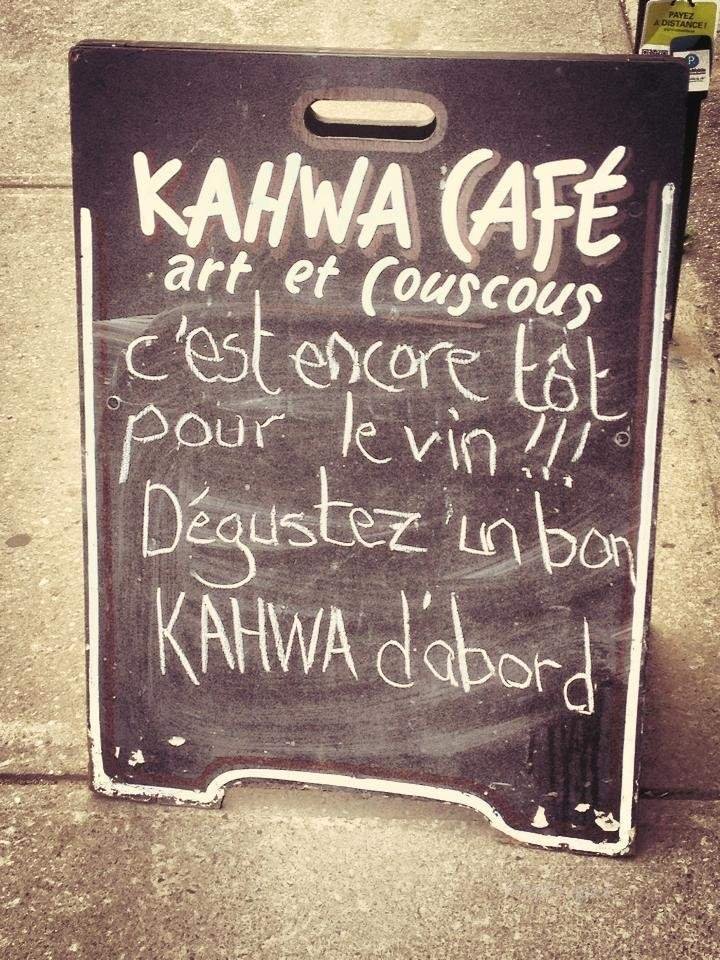 PAYEZ
À DISTANCE!
P
KAHWA CAFÉ
art et couscous
c'est encore tôt
pour le vin !!!
Dégustez un bon
KAHWA d'abord